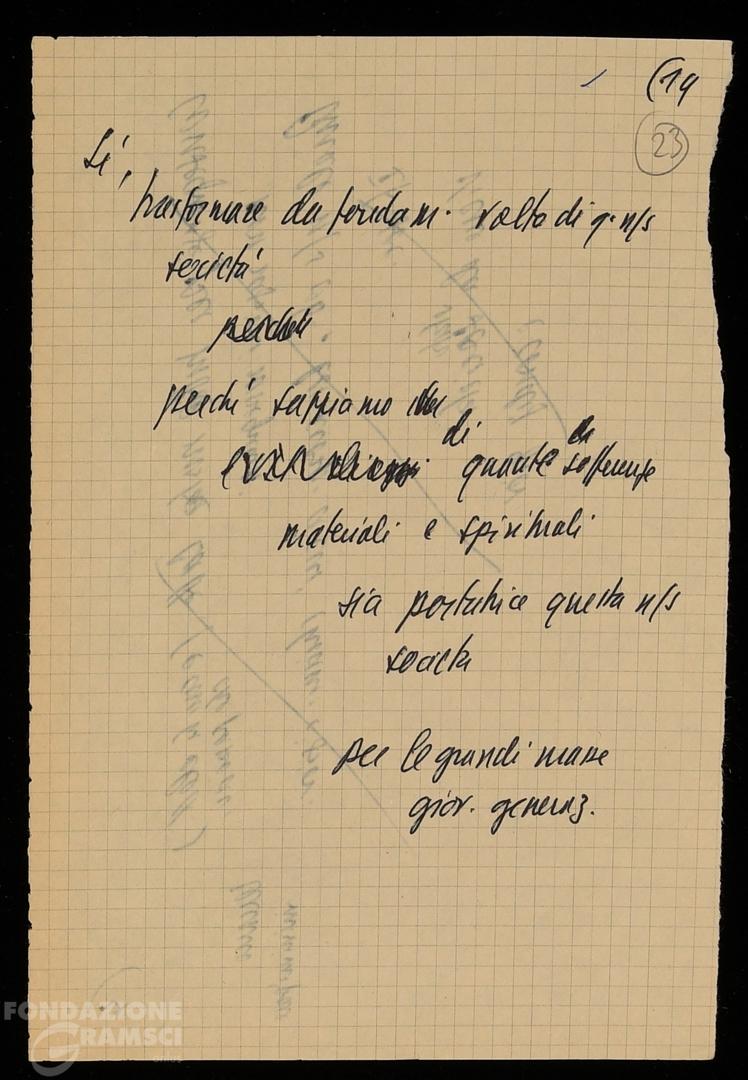 (19
23
Sì,
trasformare da fondam. volto di q. n/s
società
perché
perché sappiamo
di quante sofferenze
materiali e spirituali
sia portatrice questa n/s
società
per le grandi masse
giov. generaz.
FONDAZIONE
GRAMSCI
onlus